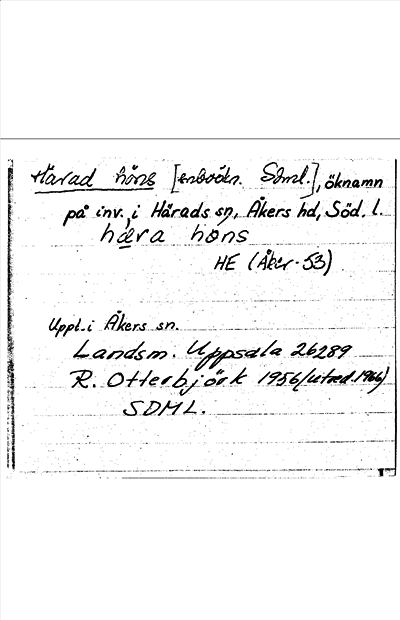 Härad höns [ensockn. Sdml.], öknamn
på inv. i Härads sn, Åkers hd, Söd. l.
hæra höns
HE (Åker. 53)
Uppt. i Åkers sn.
Landsm. Uppsala 26289
R. Otterbjörk 1956 (utred. 1966)
SDML.